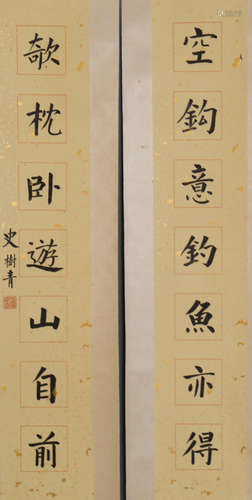 空鈎意釣魚亦得
欹枕卧遊山自前
史樹青